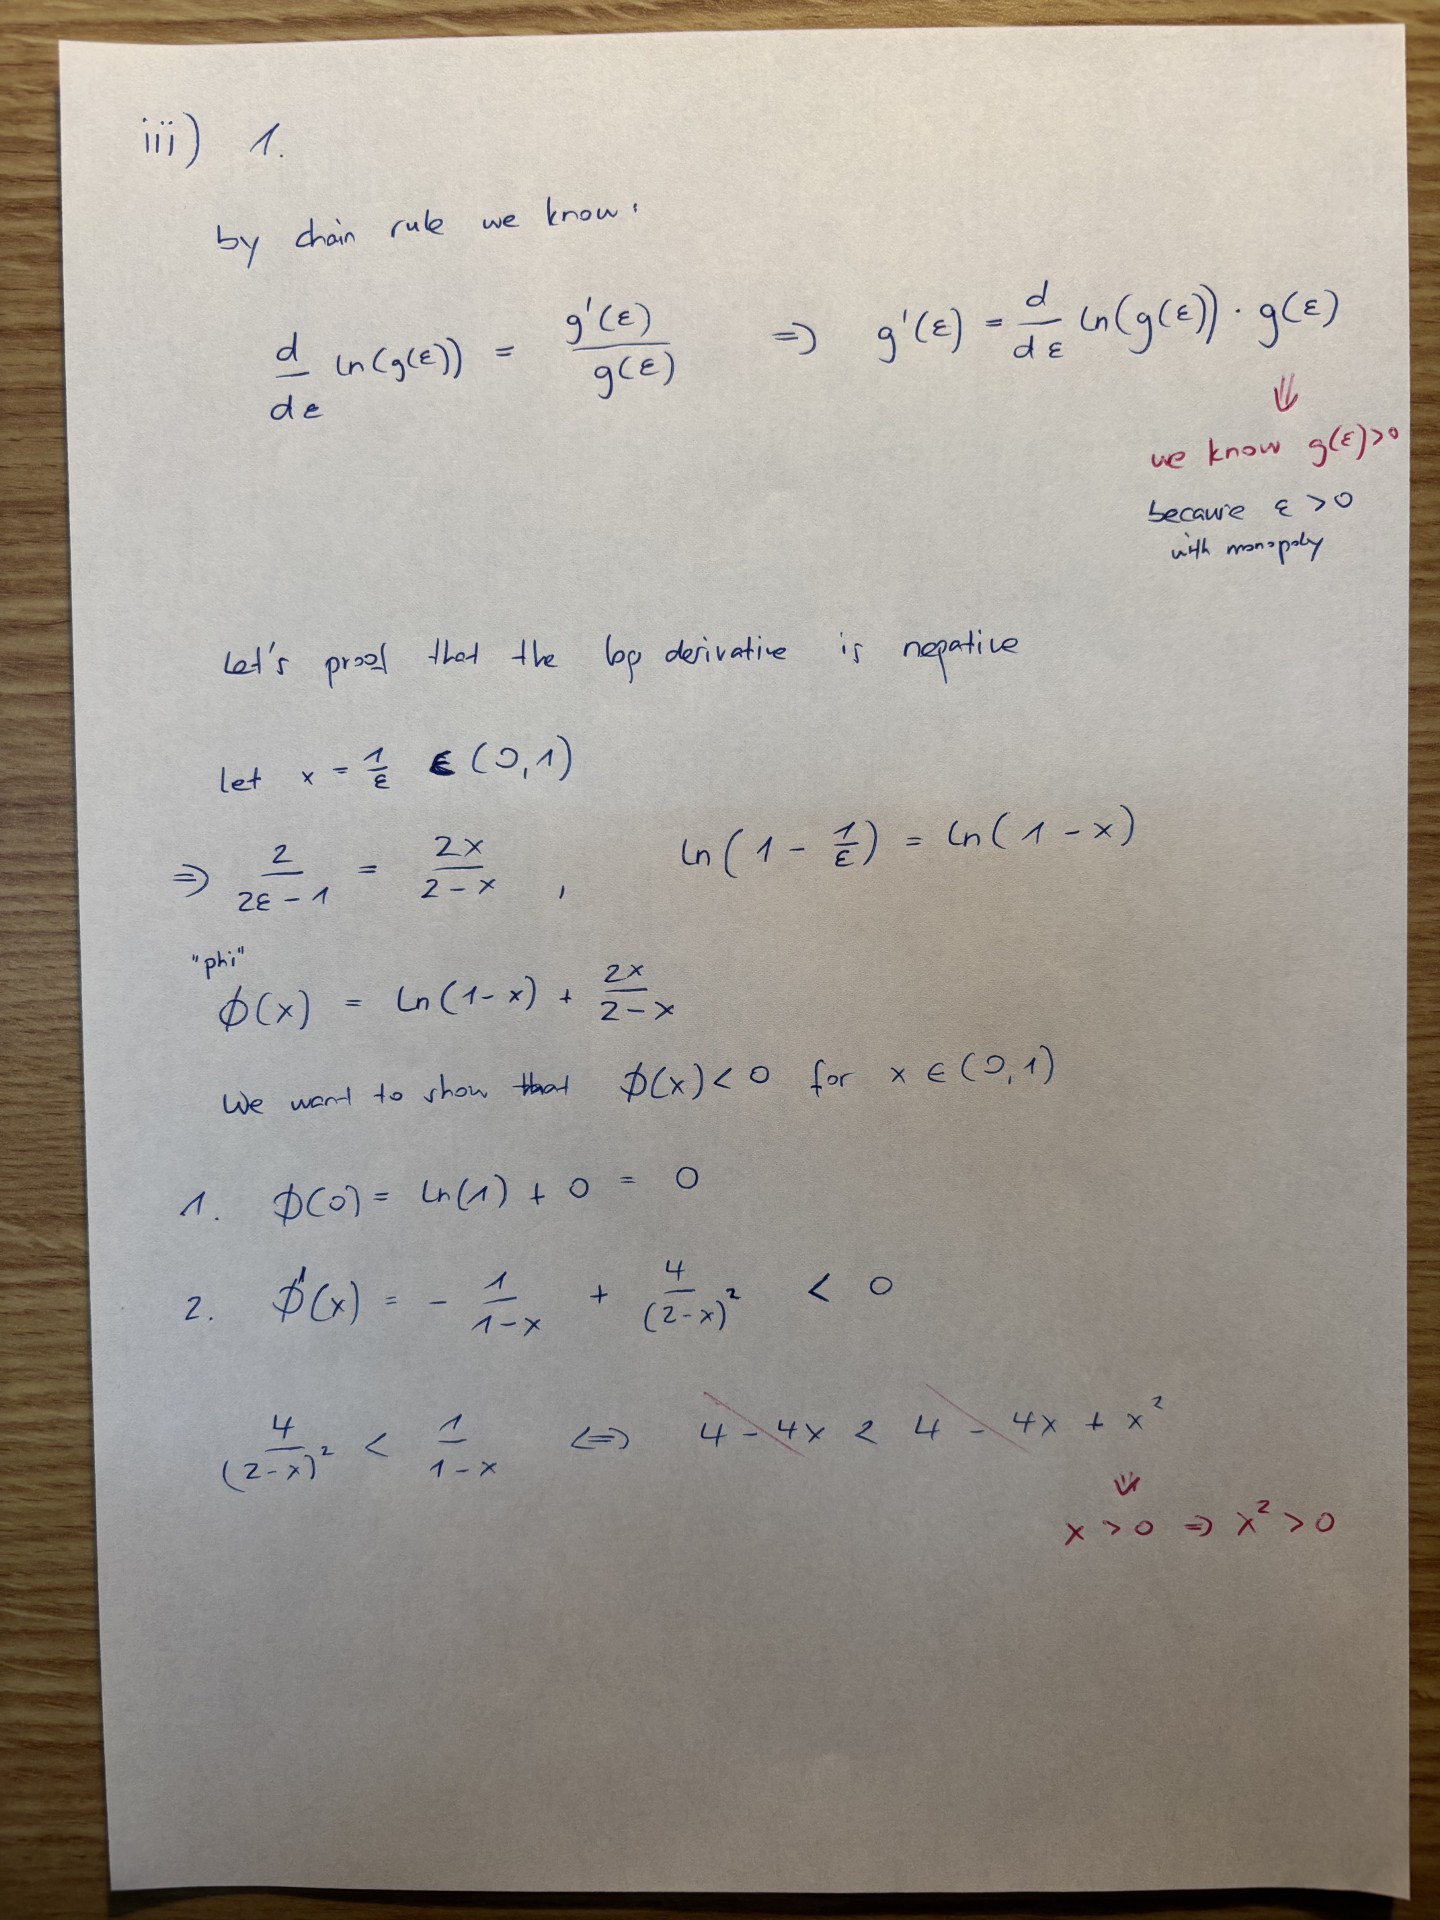 iii) 1.
by chain rule we know:
d/dε ln(g(ε)) = g'(ε)/g(ε) => g'(ε) = d/dε ln(g(ε)) · g(ε)
⇓
we know g(ε)>0
because ε > 0
with monopoly
Let's proof that the log derivative is negative
let x = 1/ε ∈ (0,1)
=> 2/(2ε - 1) = 2x/(2 - x) , ln(1 - 1/ε) = ln(1 - x)
"phi"
ϕ(x) = ln(1-x) + 2x/(2-x)
We want to show that ϕ(x) < 0 for x ∈ (0,1)
1. ϕ(0) = ln(1) + 0 = 0
2. ϕ'(x) = - 1/(1-x) + 4/(2-x)² < 0
4/(2-x)² < 1/(1-x) <=> 4 - 4x < 4 - 4x + x²
⇓
x > 0 => x² > 0